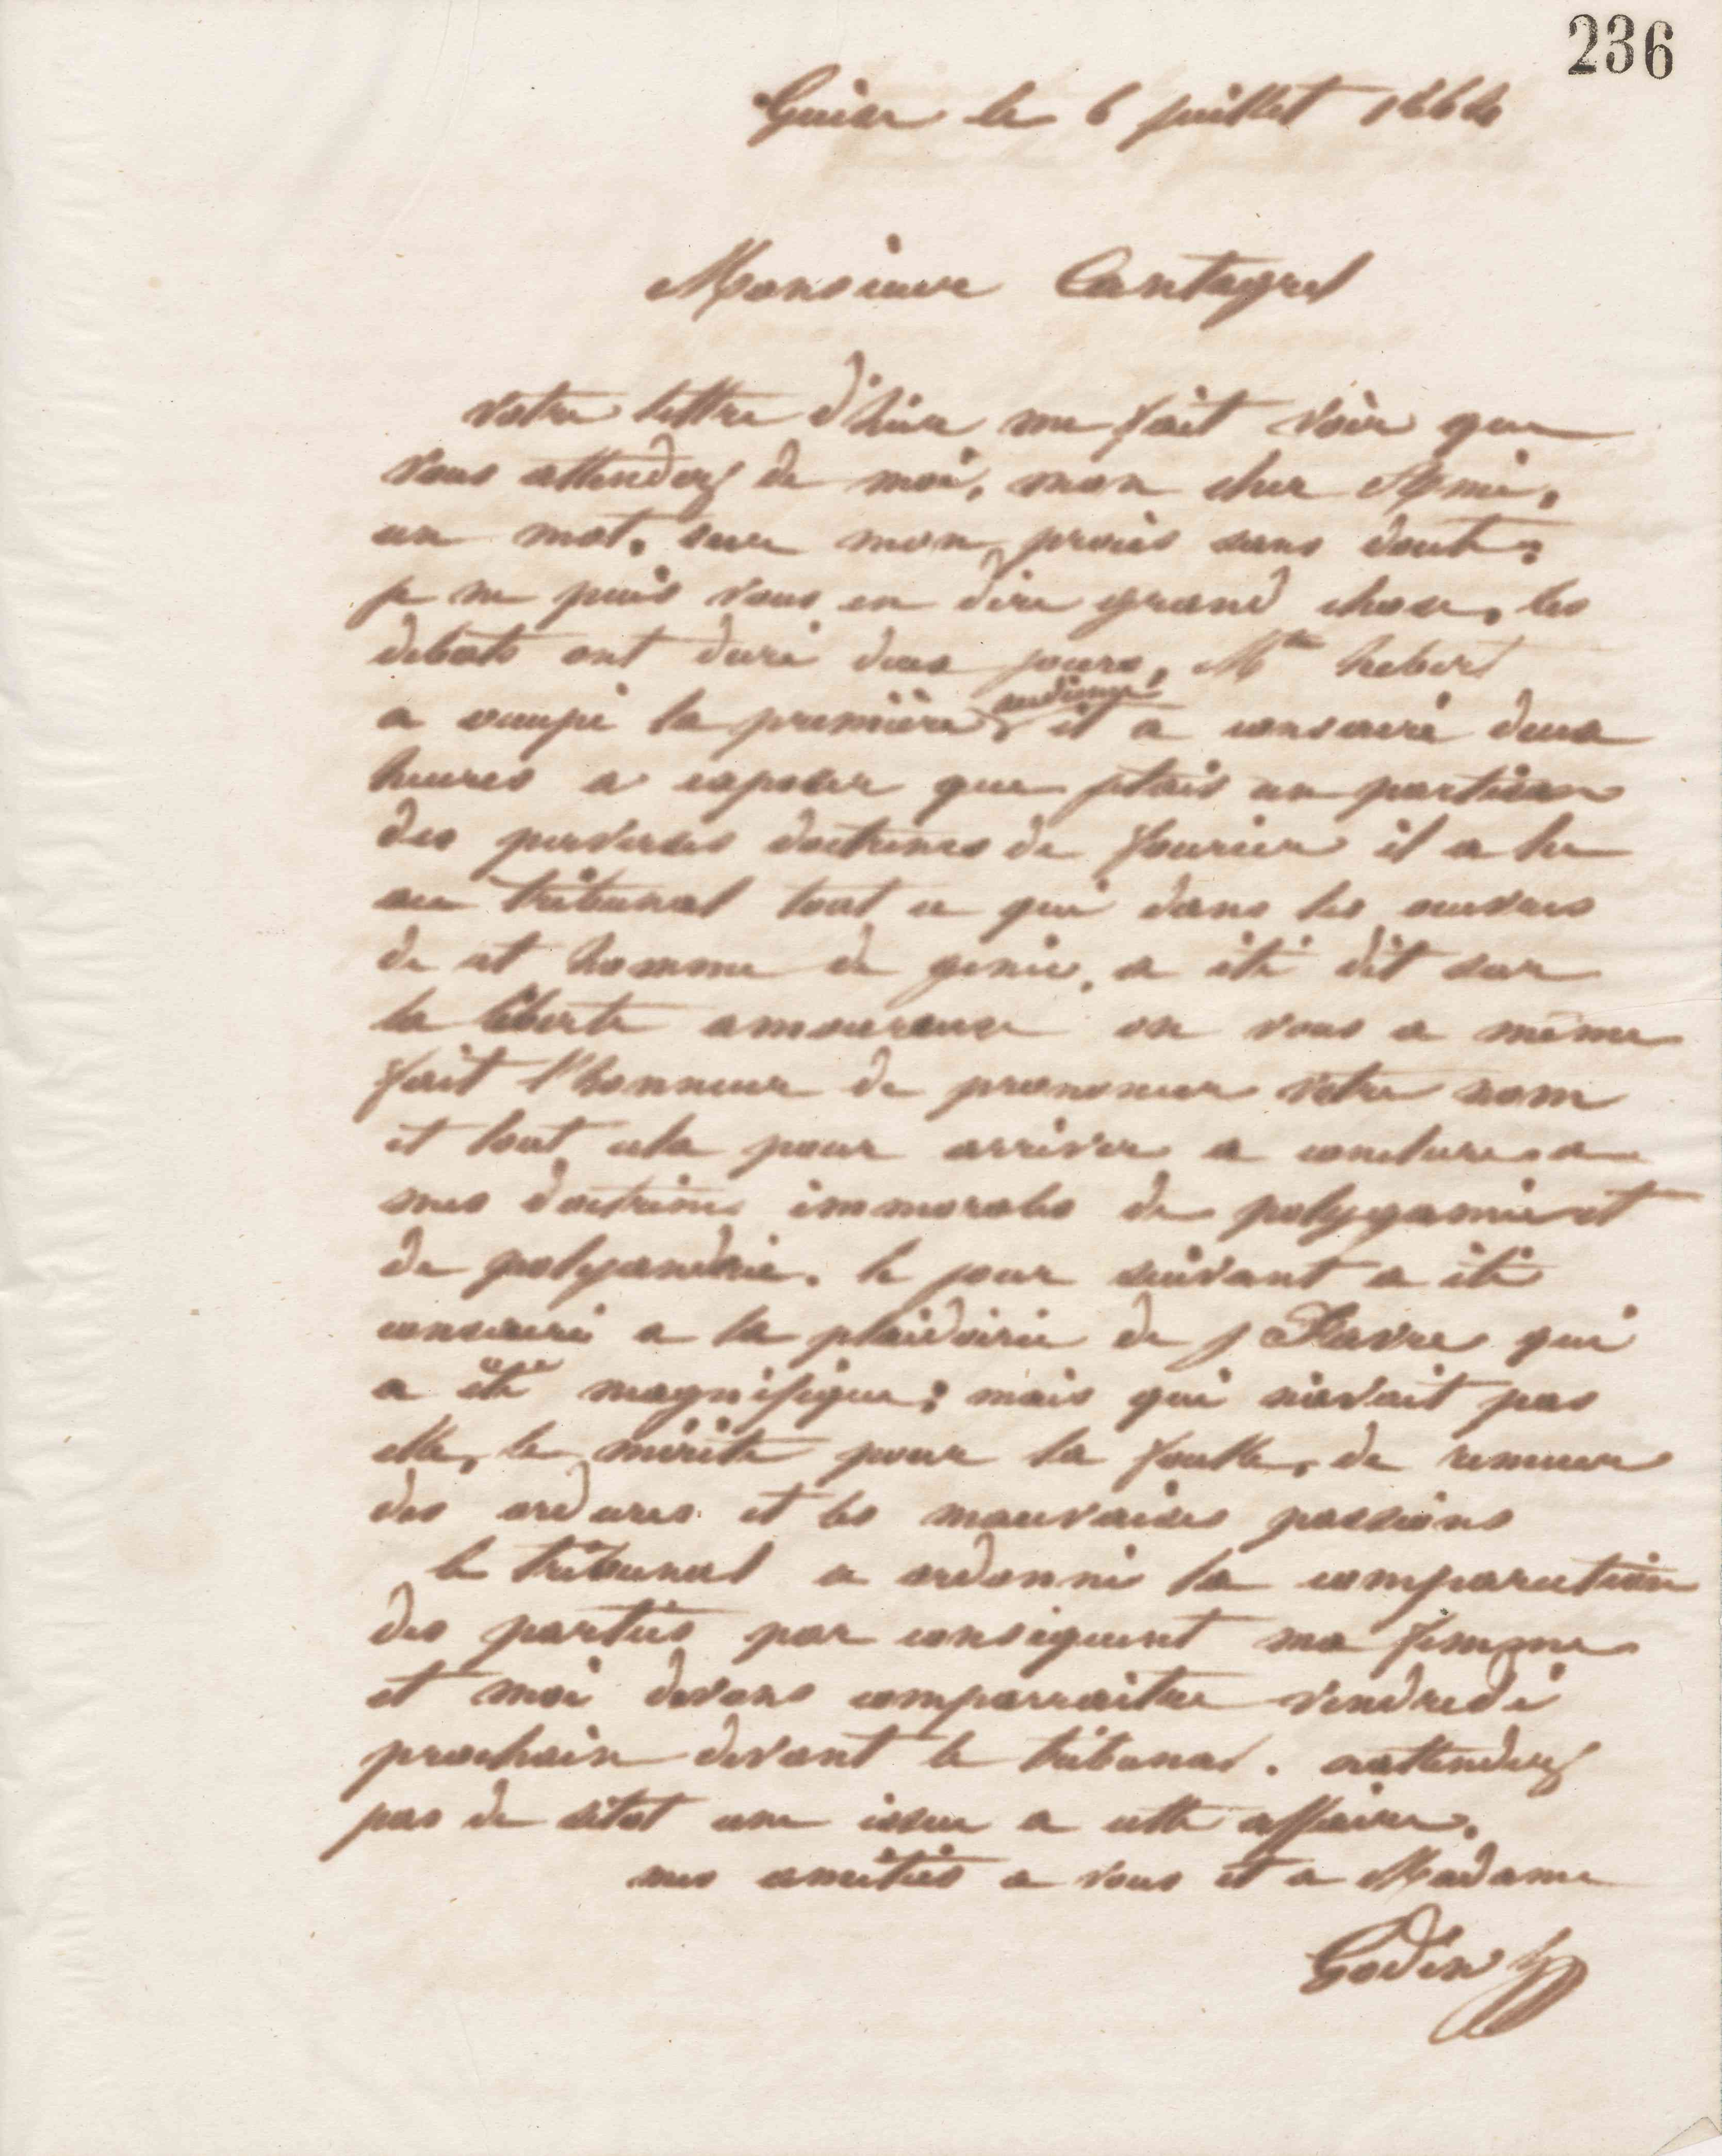 236
Guise le 6 juillet 1864
Monsieur Cantagrel
votre lettre d'hier me fait voir que
vous attendez de moi, mon cher Ami,
un mot, sur mon procès sans doute;
je ne puis vous en dire grand chose, les
debats ont duré deux jours, Me hebert
a occupé la première audience, il a consacré deux
heures a exposer que jétais un partisan
des perverses doctrines de fourier il a lu
au tribunal tout ce qui dans les oeuvres
de cet homme de genie, a été dit sur
la liberté amoureuse on vous a même
fait l'honneur de prononcer votre nom
et tout cela pour arriver a conclure a
mes doctrines immorales de polygamie et
de polyandrie. le jour suivant a été
consacré a la plaidoirie de j Favre qui
a été magnifique; mais qui n'avait pas
elle, le mérite pour la foulle, de remuer
des ordures et les mauvaises passions
le tribunal a ordonné la comparution
des parties par consequent ma femme
et moi devons comparraitre vendredi
prochain devant le tribunal. nattendez
pas de sitot une issue a cette affaire.
mes amitiés a vous et a Madame
Godin